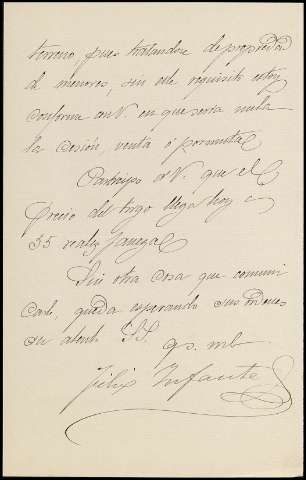 terreno, pues tratandose de propieda
d de menores, sin este requisito estoy
conforme con V. en que seria nula
la cesión, venta ó permuta
Participo á V. que el
precio del trigo llega hoy a
55 reales fanega
Sin otra cosa que comuni
carle, queda esperando sus ordenes
su atento S.S. q.s.m.b.
Felix Infante